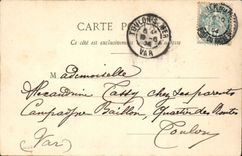 CARTE P
Ce côté est exclusivement
TOULON S. MER
VAR
Mademoiselle
Alexandrine Tassy chez ses parents
Campagne Baillon, Quartier des Routes
Toulon
(Var)